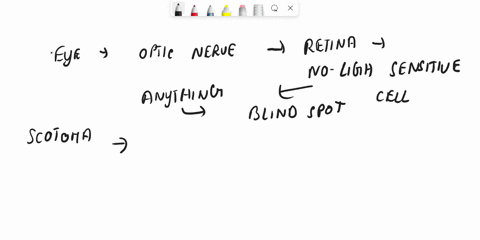 .EYE → OPTIC NERVE → RETINA →
NO-LIGH SENSITIVE
ANYTHING
BLIND SPOT CELL
SCOTOMA →